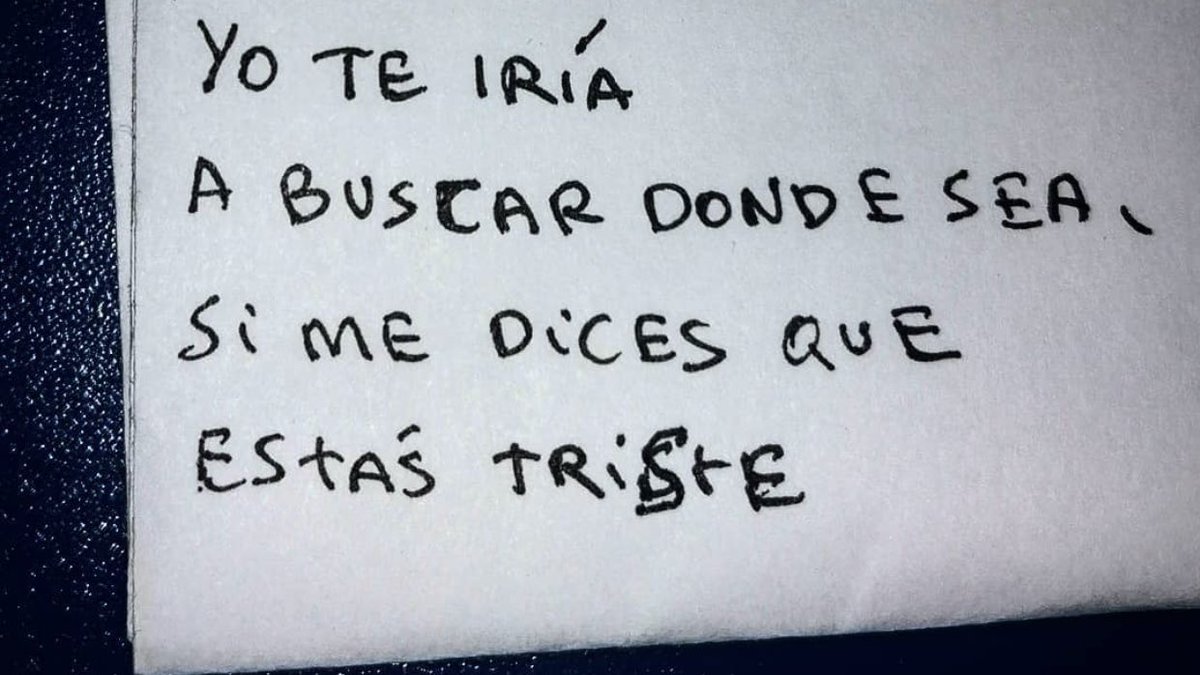 YO TE IRÍA
A BUSCAR DONDE SEA,
Si ME DiCES QUE
EStÁS TRiStE